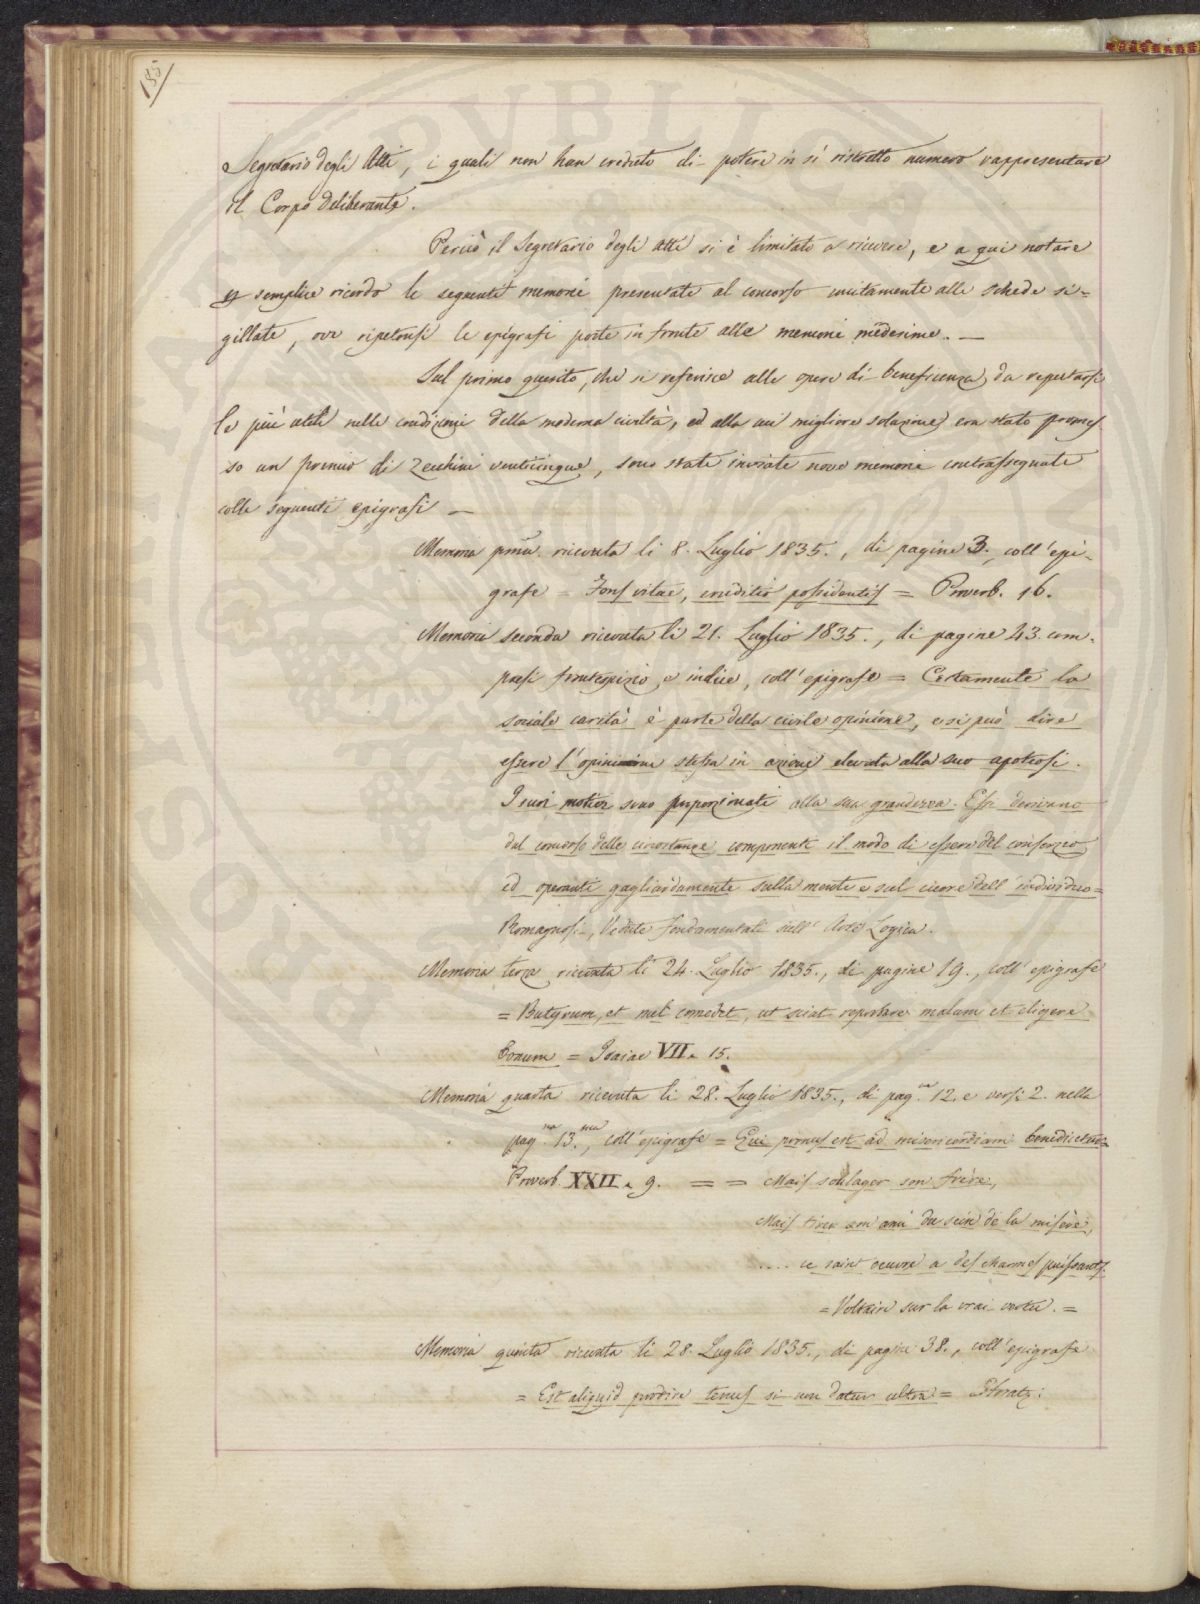 185
Segretario degli Atti, i quali non han creduto di potere in sì ristretto numero rappresentare
il Corpo deliberante.
Perciò il Segretario degli Atti si è limitato a ricevere, e a qui notare
semplice ricordo le seguenti memorie presentate al concorso unitamente alle schede si=
gillate, ove ripetonsi le epigrafi poste in fronte alle memorie medesime. —
Sul primo quesito, che si referisce alle opere di beneficenza da reputarsi
le più utili nelle condizioni della moderna civiltà, ed alla cui migliore soluzione era stato promes
so un premio di Zecchini venticinque, sono state inviate nove memorie contrassegnate
colle seguenti epigrafi —
Memoria pma. ricevuta li 8. Luglio 1835., di pagine 3., coll'epi-
grafe = Fons vitae, eruditio possidentis = Proverb. 16.
Memoria seconda ricevuta li 21. Luglio 1835., di pagine 43. com-
presi frontespizio e indice, coll'epigrafe = Certamente la
sociale carità è parte della civile opinione, e si può dire
essere l'opinione stessa in azione elevata alla sua apoteosi.
I suoi motior sono proporzionati alla sua grandezza. Essi derivano
dal concorso delle circostanze componenti il modo di essere del consorzio
ed operanti gagliardamente sulla mente e sul cuore dell'individuo=
Romagnosi, Vedute fondamentali sull'Arte Logica.
Memoria terza ricevuta li 24. Luglio 1835., di pagine 19., coll'epigrafe
= Butyrum, et mel comedet, ut sciat reprobare malum et eligere
bonum = Isaiae VII. 15.
Memoria quarta ricevuta li 28. Luglio 1835., di pag.ne 12. e versi 2. nella
pag.na 13.ma, coll'epigrafe = Qui pronus est ad misericordiam benedicetur=
Proverb. XXII. 9. = = Mais soulager son frère,
Mais tirer son ami du sein de la misère,
.... ce saint oeuvre a des charmes puissants.
= Voltaire sur la vrai vertu. =
Memoria quinta ricevuta li 28. Luglio 1835., di pagine 38., coll'epigrafe
= Est aliquid prodire tenus si non datur ultra = Horatz: